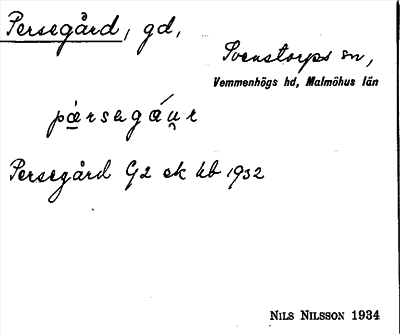 Persegård, gd,
Svenstorps sn,
Vemmenhögs hd, Malmöhus län
pärsagáu̯r
Persegård G2 ek kb 1932
NILS NILSSON 1934